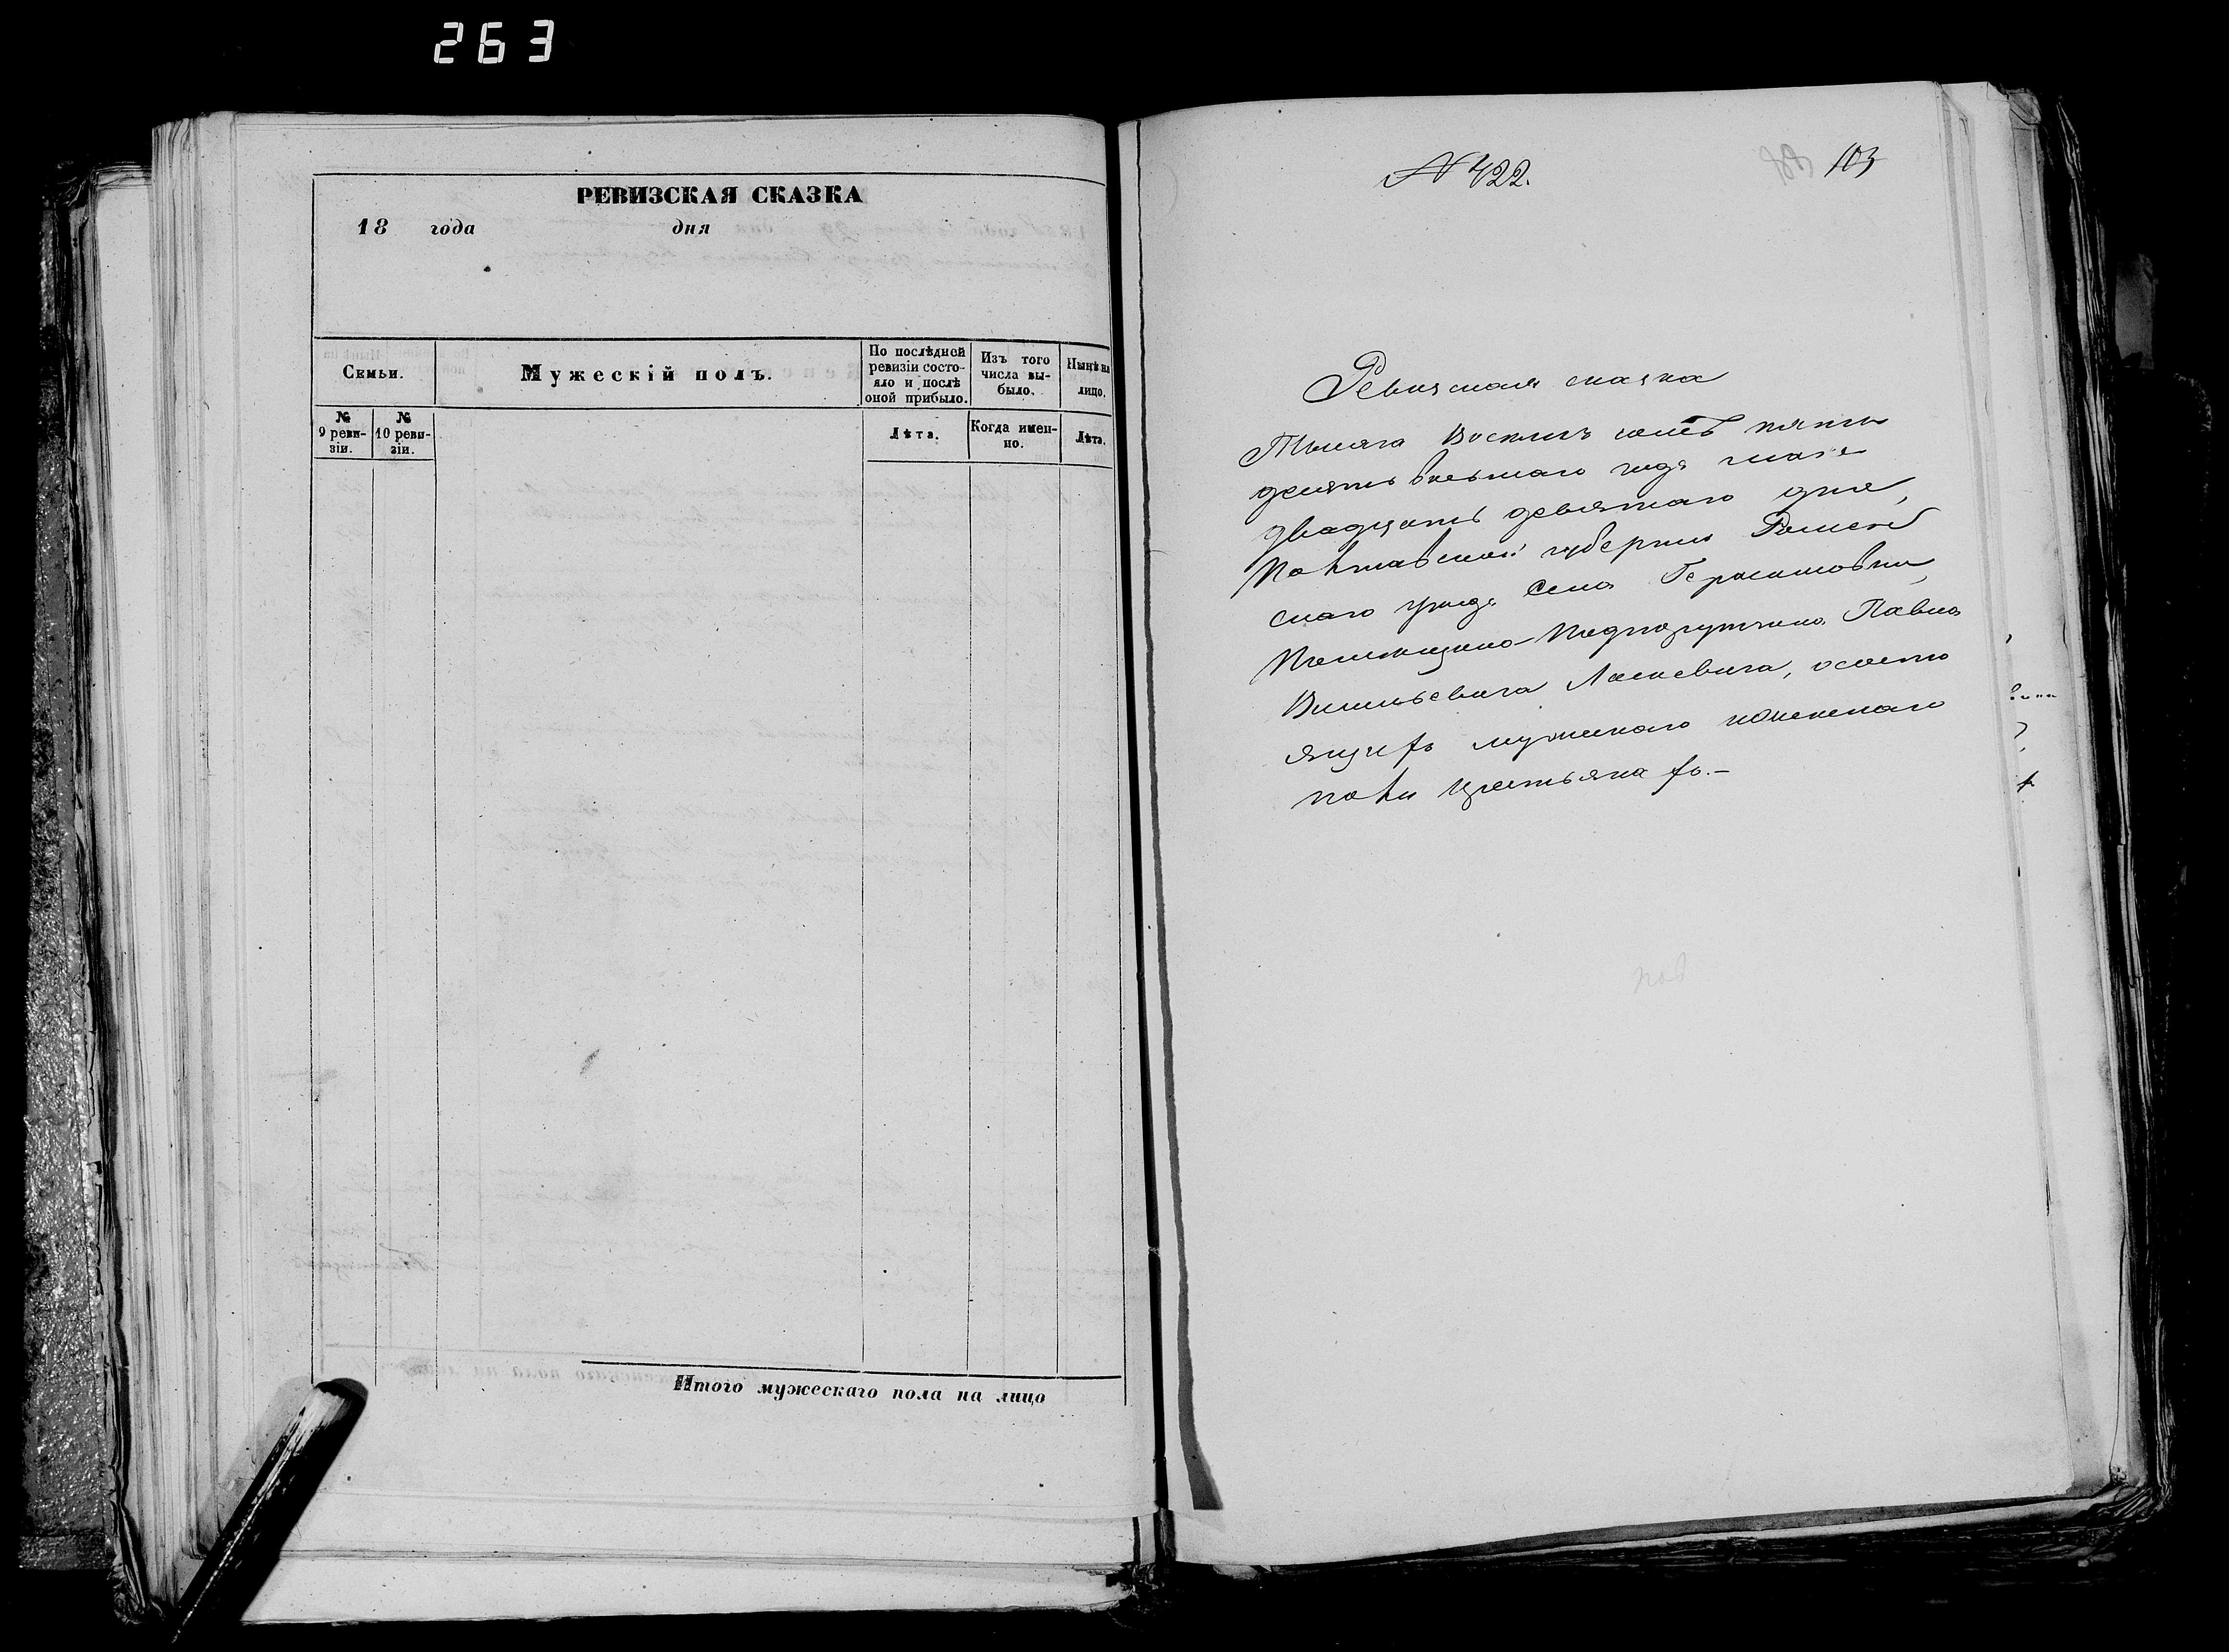 263
РЕВИЗСКАЯ СКАЗКА
18 года дня
Семьи.
Мужескій полъ.
По послѣдней ревизіи состо-
яло и послѣ оной прибыло.
Изъ того числа вы-
было.
Нынѣ на лицо.
№ 9 реви-
зіи.
№ 10 реви-
зіи.
Лѣта.
Когда имен-
но.
Лѣта.
Итого мужескаго пола на лицо
№ 422.
103
Ревизская сказка
Тысяча восемь сотъ пять
десять восьмаго года мая
двадцать девятаго дня,
Полтавской губерніи Ромен
скаго уѣзда села Герасимовки,
Помещика Подпоручика Павла
Васильевича Ласкевича, о состо
ящихъ мужескаго и женскаго
пола крестьянахъ.